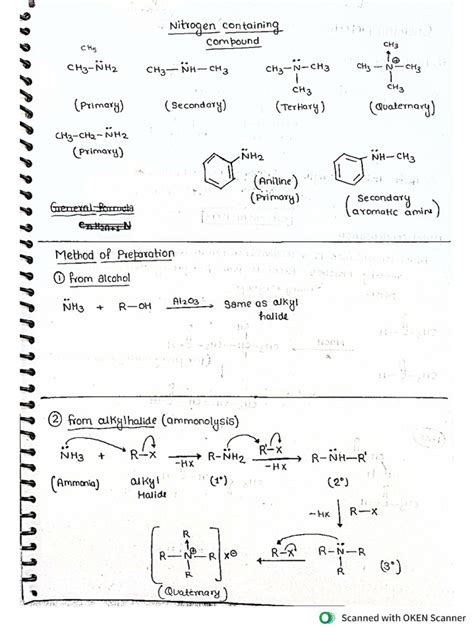 Nitrogen containing
compound
CH3
CH3-N̈H2 CH3-N̈H-CH3 CH3-N̈-CH3 CH3-N⊕-CH3
CH3
CH3
CH3
(Primary) (Secondary) (Tertiary) (Quaternary)
CH3-CH2-N̈H2
(Primary)
N̈H2
N̈H-CH3
(Aniline)
(Primary)
Secondary
(aromatic amine)
General Formula
CnH2n+3 N
Method of Preparation
① from alcohol
N̈H3 + R-OH Al2O3 → same as alkyl
halide
② from alkylhalide (ammonolysis)
N̈H3 + R-X → -HX R-N̈H2 R-X → -HX R-N̈H-R'
(Ammonia) alkyl
Halide
(1°) (2°)
-HX ↓ R-X
[R-N⊕-R] X⊖ ← R-X R-N̈-R
R
R
R
(3°)
(Quaternary)
Scanned with OKEN Scanner